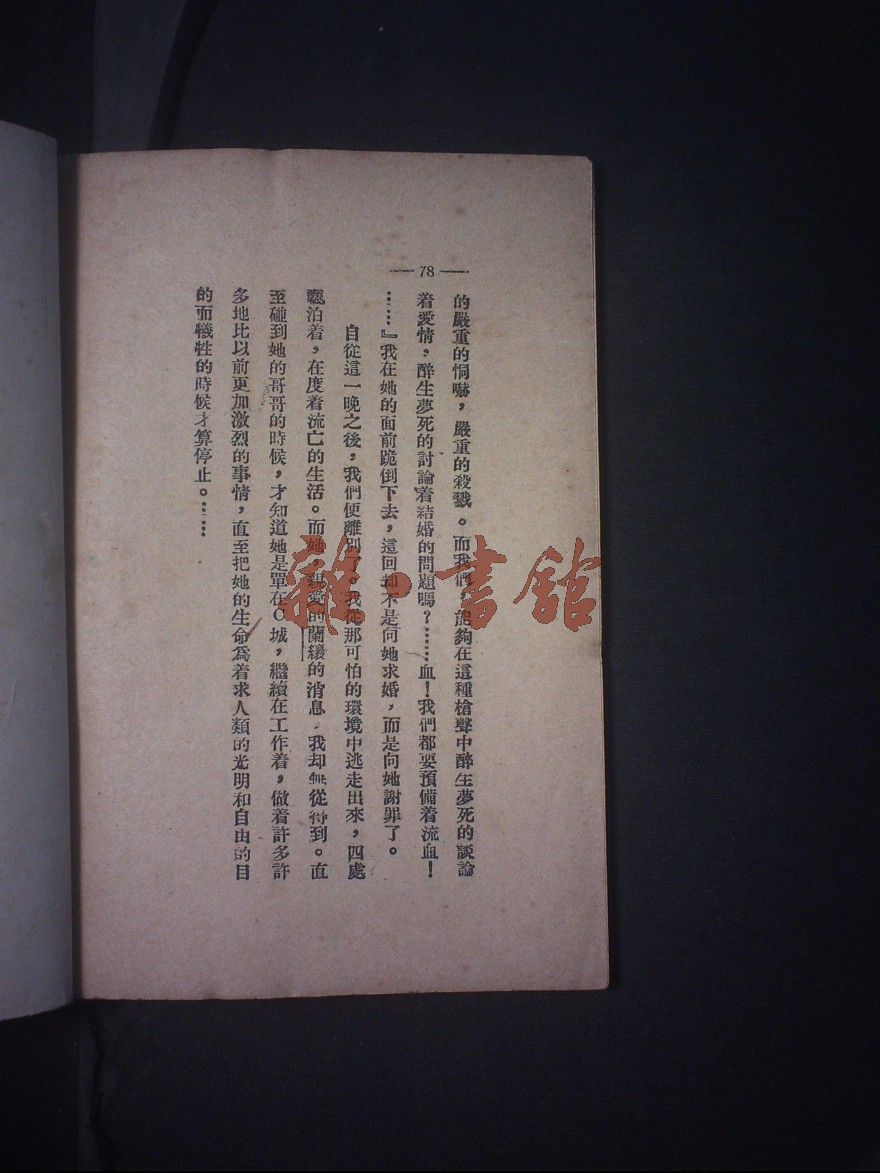 — 78 —
的嚴重的恫嚇，嚴重的殺戮。而我們，能夠在這種槍聲中醉生夢死的談論
着愛情，醉生夢死的討論着結婚的問題嗎？……血！我們都要預備着流血！
……』我在她的面前跪倒下去，這回却不是向她求婚，而是向她謝罪了。
自從這一晚之後，我們便離別了。我從那可怕的環境中逃走出來，四處
飄泊着，在度着流亡的生活。而她，親愛的蘭緩的消息，我却無從得到。直
至碰到她的哥哥的時候，才知道她是單在C城，繼續在工作着，做着許多許
多地比以前更加激烈的事情，直至把她的生命爲着求人類的光明和自由的目
的而犧牲的時候才算停止。……
雜·書館